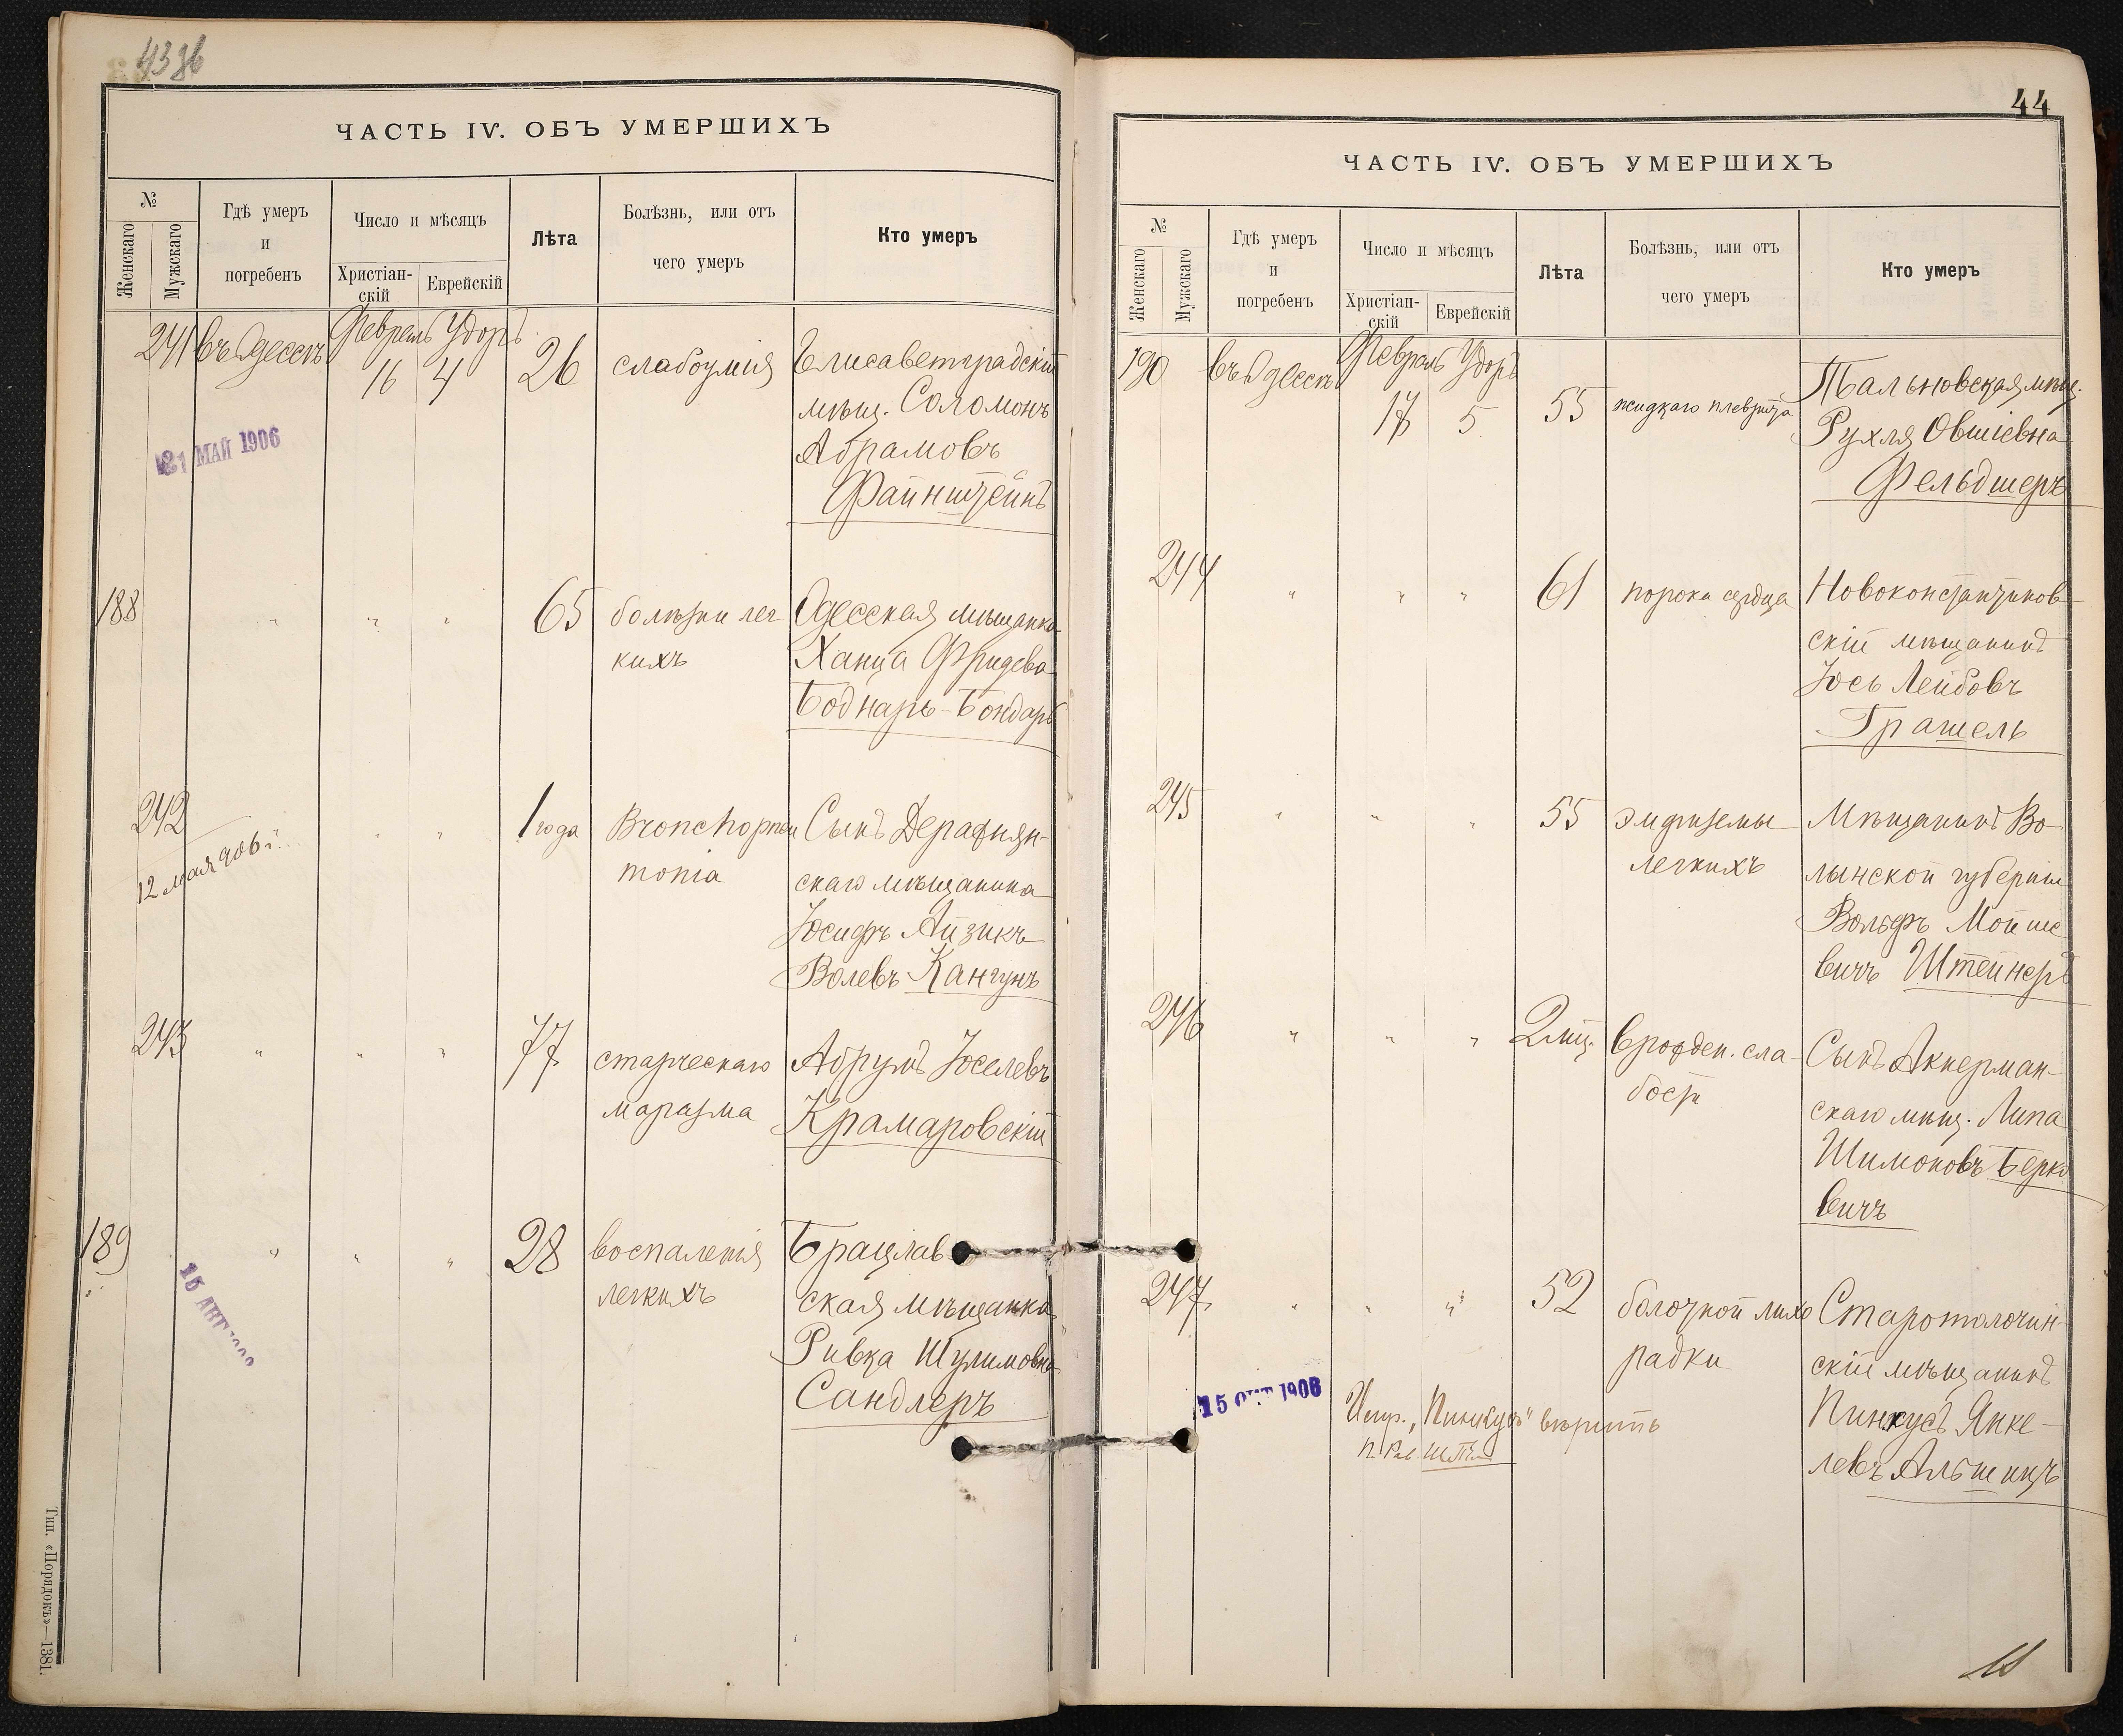 43 об
ЧАСТЬ IV. ОБЪ УМЕРШИХЪ
№
Женскаго
Мужскаго
Гдѣ умеръ
и
погребенъ
Число и мѣсяцъ
Христіан-
скій
Еврейскій
Лѣта
Болѣзнь, или отъ
чего умеръ
Кто умеръ
241 въ Одессѣ Февраль Удоръ
16 4 26 слабоумія Елисаветградскій
мѣщ. Соломонъ
Абрамовъ
Файнштейнъ
21 МАЙ 1906
188 " " " 65 болѣзни лег
кихъ
Одесская мѣщанка
Ханца Фридева
Боднарь-Бондарь
242 " " 1 года Bronchopneu
monia
12 мая 906 г.
Сынъ Деражнян-
скаго мѣщанина
Іосифъ Айзикъ
Волевъ Канчунъ
243 " " " 77 старческаго
маразма
Абрумъ Іоселевъ
Крамаровскій
189 " " " 28 воспаленія
легкихъ
15 АВГ
Брацлав
ская мѣщанка
Ривка Шулимовна
Сандлеръ
Тип. «Порядокъ»—1381.
44
ЧАСТЬ IV. ОБЪ УМЕРШИХЪ
№
Женскаго
Мужскаго
Гдѣ умеръ
и
погребенъ
Число и мѣсяцъ
Христіан-
скій
Еврейскій
Лѣта
Болѣзнь, или отъ
чего умеръ
Кто умеръ
190 въ Одессѣ Февраль Удоръ
17 5 55 жидкаго плеврита
Тальновская мѣщ.
Рухля Овшіевна
Фельдшеръ
244 " " " 61 порока сердца
Новоконстантинов-
скій мѣщанинъ
Іось Лейбовъ
Грашель
245 " " " 55 эмфиземы
легкихъ
Мѣщанинъ Во-
лынской губерніи
Вольфъ Мойше
вичъ Штейнеръ
246 " " " 2 мѣс. врожден. сла-
бости
Сынъ Аккерман-
скаго мѣщ. Липа
Шимоновъ Берко
вичъ
247 " " " 52 болотной лихо
радки
Старотолочин-
скій мѣщанинъ
Пинкусъ Янке-
левъ Альшицъ
15 ОКТ 1906
Испр. „Пинкусъ" вѣрить